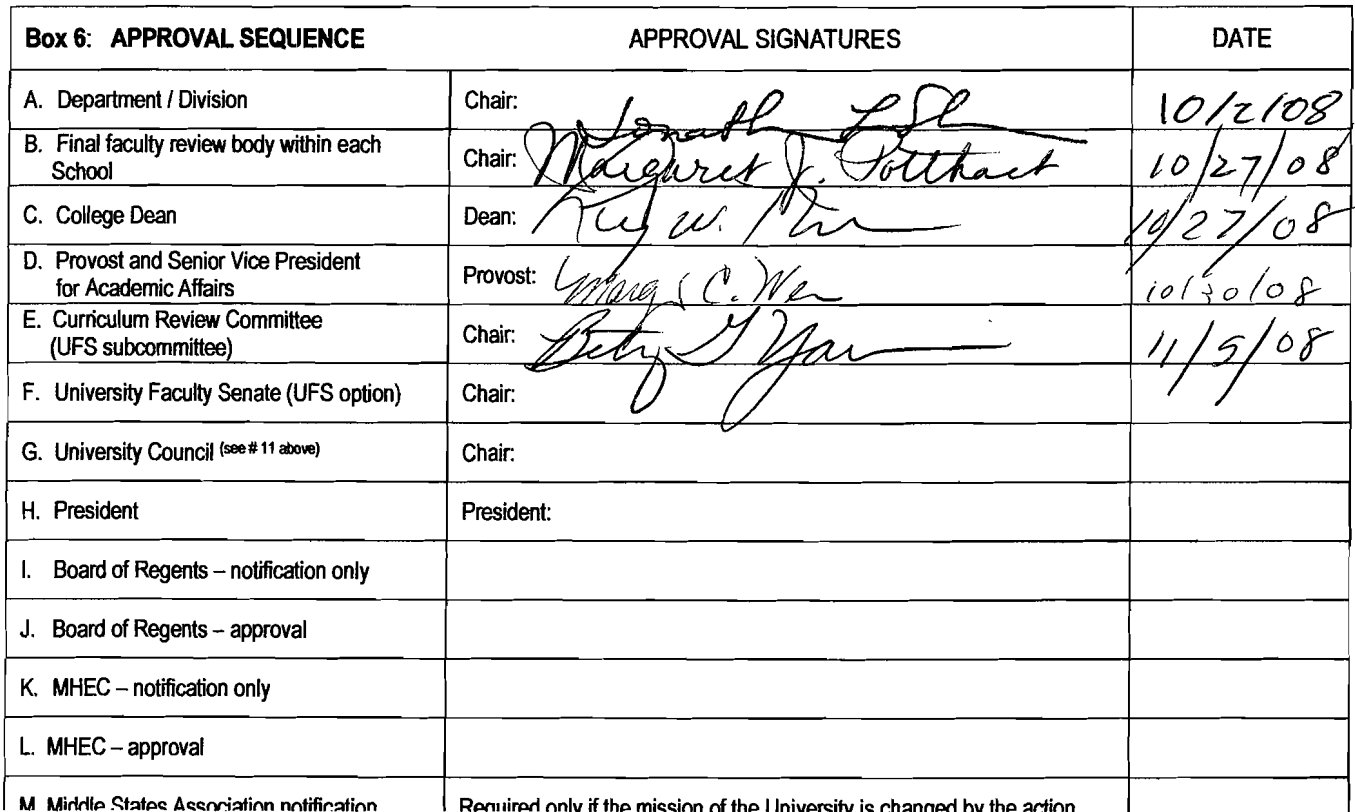 Box 6: APPROVAL SEQUENCE APPROVAL SIGNATURES DATE
A. Department / Division Chair: 10/2/08
B. Final faculty review body within each
School Chair: Margaret J. Potthast 10/27/08
C. College Dean Dean: W. 10/27/08
D. Provost and Senior Vice President
for Academic Affairs Provost: C. 10/30/08
E. Curriculum Review Committee
(UFS subcommittee) Chair: 11/5/08
F. University Faculty Senate (UFS option) Chair:
G. University Council (see # 11 above) Chair:
H. President President:
I. Board of Regents – notification only
J. Board of Regents – approval
K. MHEC – notification only
L. MHEC – approval
M. Middle States Association notification Required only if the mission of the University is changed by the action